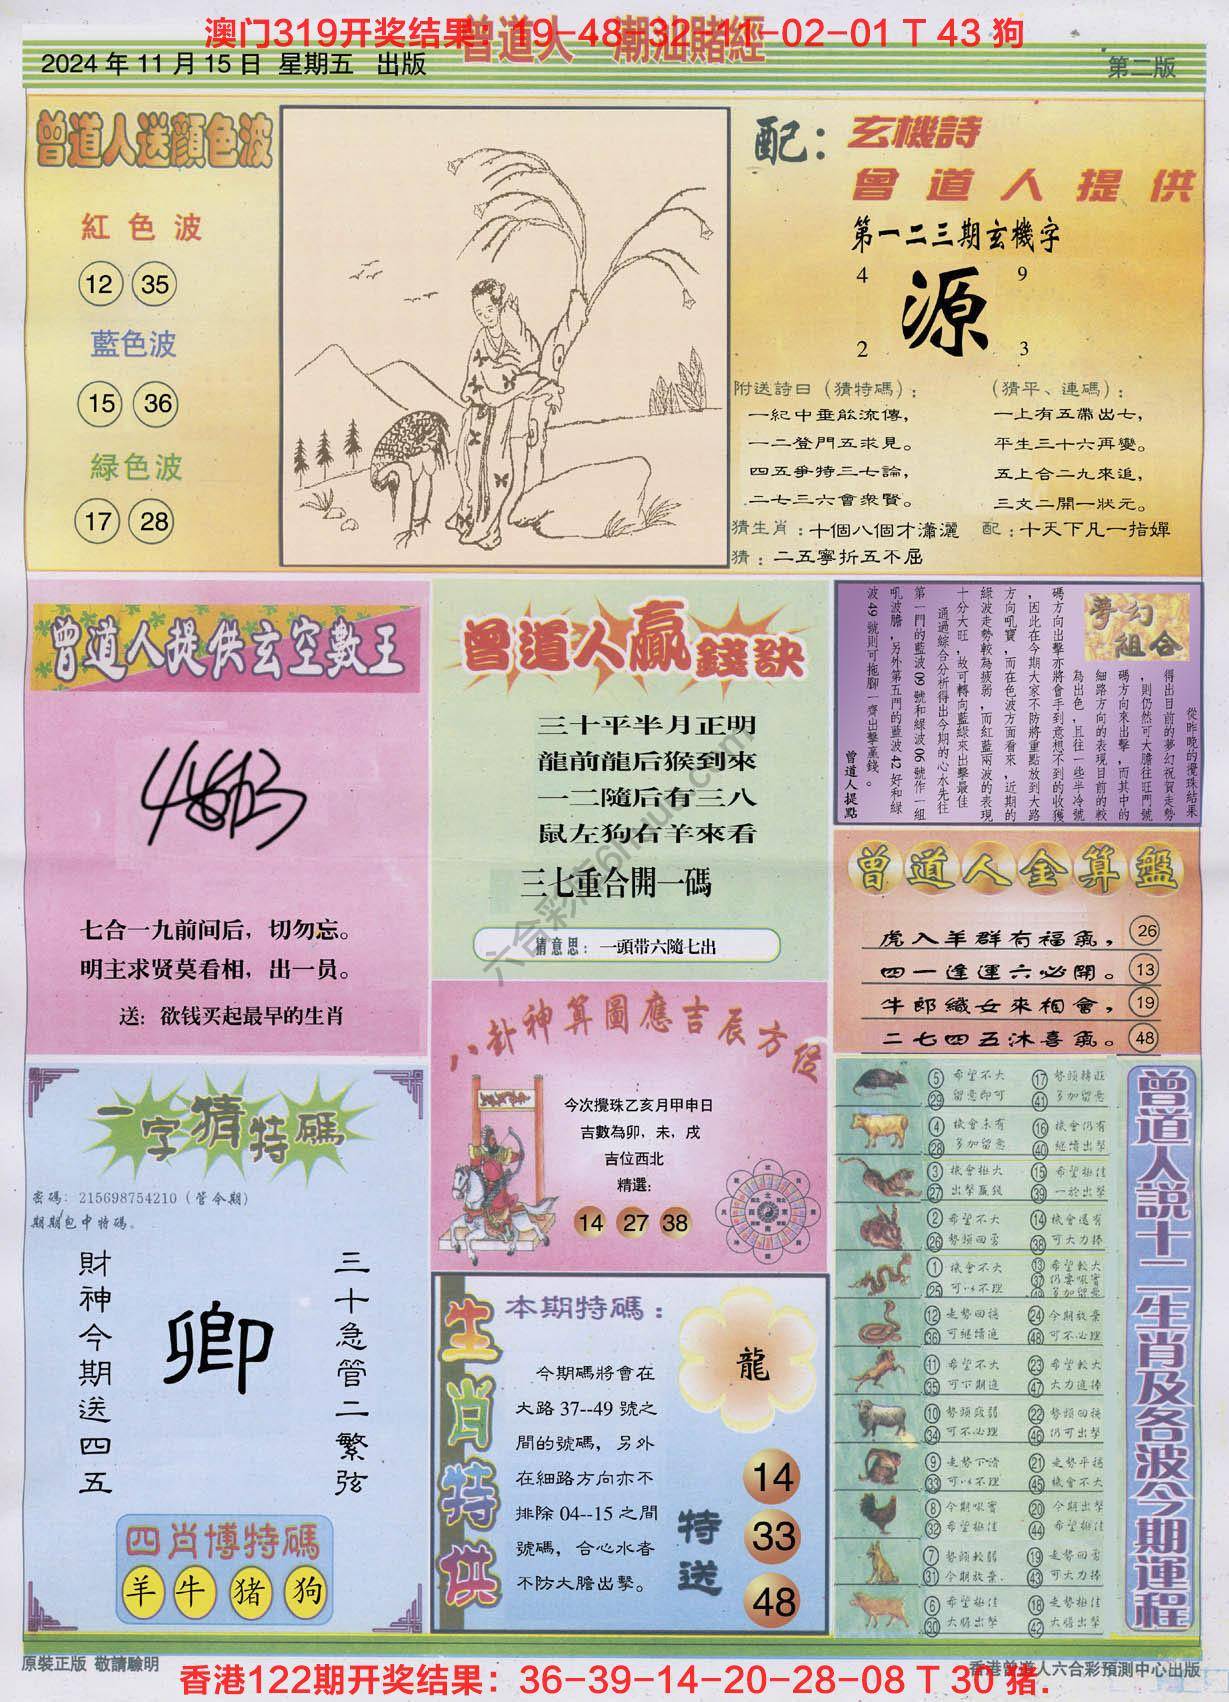 澳门319开奖结果：19-48-32-11-02-01 T 43 狗
曾道人 潮汕賭經
2024 年 11 月 15 日 星期五 出版
第二版
曾道人送顏色波
紅色波
12 35
藍色波
15 36
緑色波
17 28
配：玄機詩
曾道人提供
第一二三期玄機字
4 9
源
2 3
附送詩曰（猜特碼）：
一紀中垂能流傳，
一二登門五求見。
四五爭特三七論，
二七三六會衆賢。
（猜平、連碼）：
一上有五帶出七，
平生三十六再變。
五上合二九來追，
三文二開一狀元。
猜生肖：十個八個才瀟灑
配：十天下凡一指嬋
猜：二五寧折五不屈
曾道人提供玄空數王
七合一九前间后，切勿忘。
明主求贤莫看相，出一员。
送：欲钱买起最早的生肖
曾道人贏錢訣
三十平半月正明
龍前龍后猴到來
一二隨后有三八
鼠左狗右羊來看
三七重合開一碼
猜意思：一頭带六隨七出
夢幻組合
從昨晚的攪珠結果
得出目前的夢幻祝賀走勢
，則仍然可大膽往旺門號
碼方向來出擊，而其中的
細路方向的表現目前的較
為出色，且往一些半冷號
碼方向出擊亦將會手到意想不到的收獲
，因此在今期大家不防將重點放到大路
方向吼寶，而在色波方面看來，近期的
綠波走勢較為疲弱，而紅藍兩波的表現
十分大旺，故可轉向藍綠來出擊最佳
通過綜合分析得出今期的心水先往
第一門的藍波09號和綠波06號作一組
吼波膽，另外第五門的藍波42好和綠
波49號則可拖腳一齊出擊贏錢。
曾道人提點
曾道人金算盤
虎入羊群有福氣， 26
四一逢運六必開。 13
牛郎織女來相會， 19
二七四五沐喜氣。 48
八卦神算圖應吉辰方位
今次攪珠乙亥月甲申日
吉數為卯，未，戌
吉位西北
精選：
14 27 38
一字猜特碼
密碼：215698754210（管令期）
期期包中特碼。
財神今期送四五
卿
三十急管二繁弦
四肖博特碼
羊 牛 猪 狗
生肖特供
本期特碼：
龍
今期碼將會在
大路 37--49 號之
間的號碼，另外
在細路方向亦不
排除 04--15 之間
號碼，合心水者
不防大膽出擊。
特送
14
33
48
曾道人説十二生肖及各波今期運程
5 希望不大 17 勢頭轉旺
29 留意即可 41 多加留意
4 機會未有 16 機會仍有
28 多加留意 40 繼續出擊
3 機會挺大 15 希望挺佳
27 出擊贏錢 39 一於出擊
2 希望不大 14 機會還有
26 勢頭回勇 38 可大力捧
1 機會不大 13 希望較大
25 可以不理 37 仍要吼實
49 多加留意
12 走勢回穩 24 今期放棄
36 可繼續追 48 可不必理
11 希望不大 23 希望較大
35 可下期追 47 大力追捧
10 勢頭疲弱 22 勢頭回穩
34 可不必理 46 仍可出擊
9 走勢下滑 21 走勢平穩
33 可以不理 45 機會不大
8 今期吼實 20 今期出擊
32 希望挺佳 44 希望挺佳
7 勢頭較弱 19 走勢回勇
31 今期放棄. 43 可大力捧
6 希望挺佳 18 走勢挺佳
30 大膽出擊 42 大膽出擊
原裝正版 敬請驗明
香港曾道人六合彩預測中心出版
香港122期开奖结果：36-39-14-20-28-08 T 30 猪.